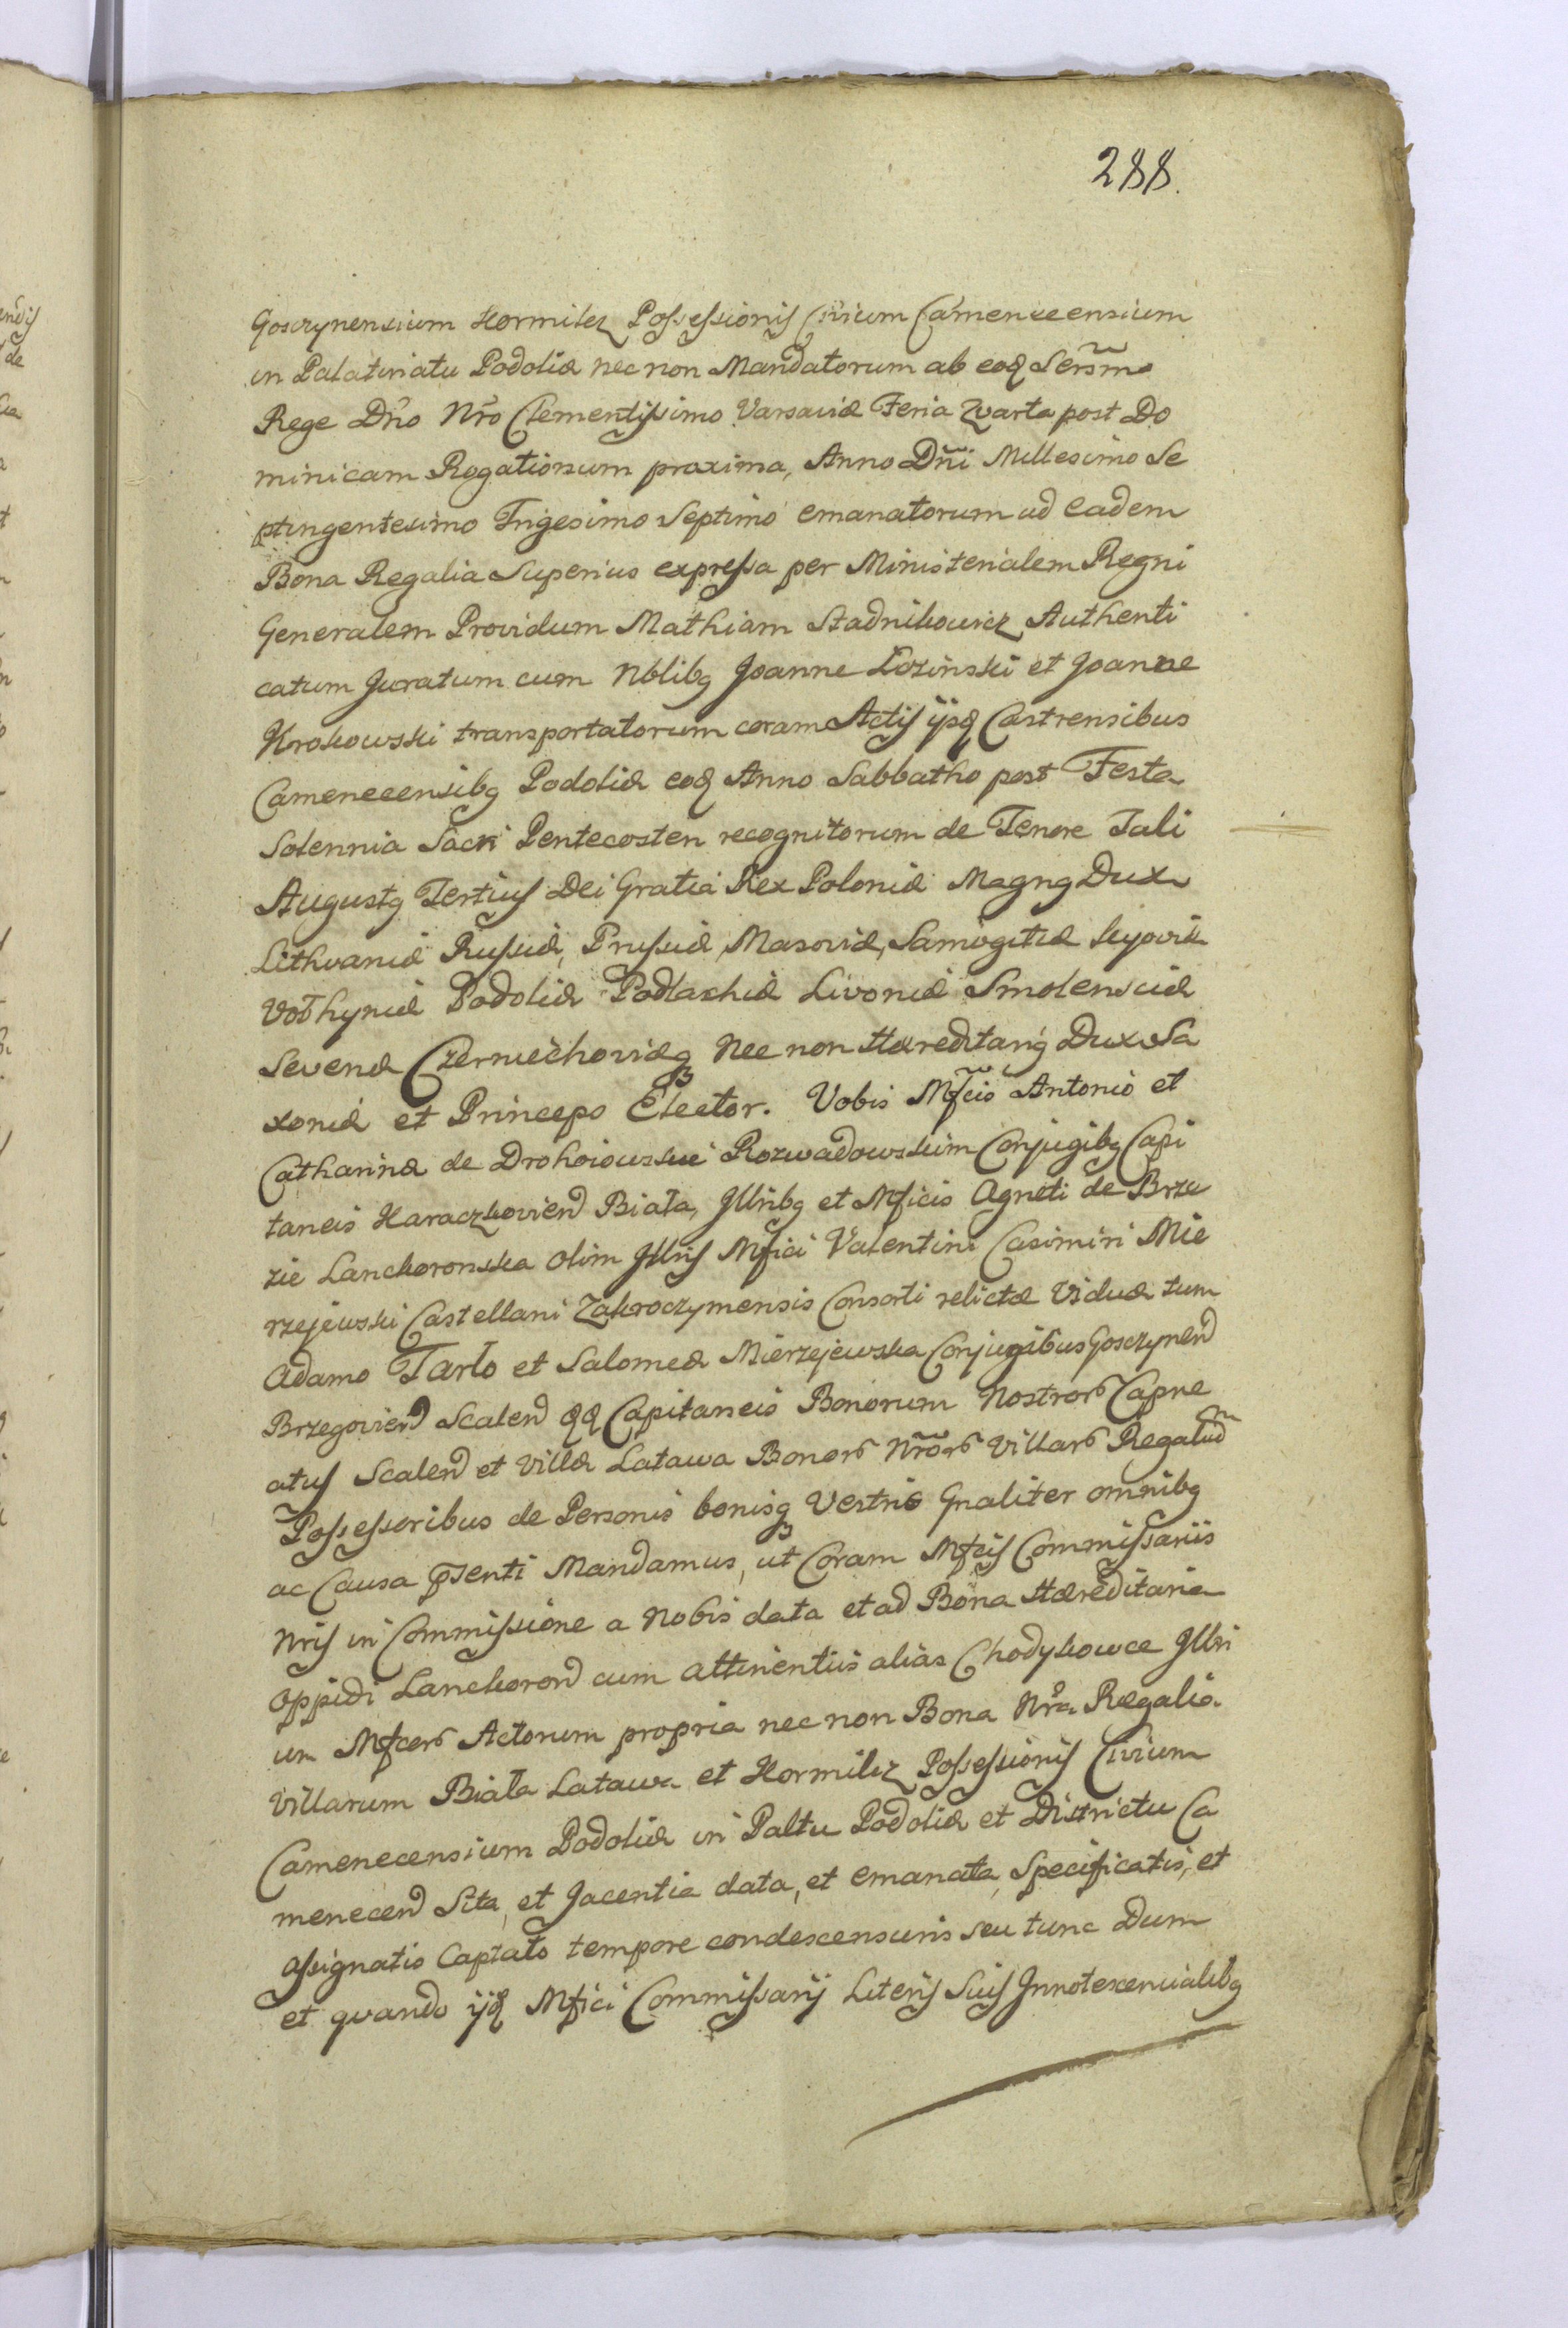 288.
Goszynensium Hormilcz Possessionis Civium Camenecensium
in Palatinatu Podoliæ nec non Mandatorum ab eoq Serm̃o
Rege Dño Nr̃o Clementissimo Varsaviæ Feria Qvarta post Do
minicam Rogationum proxima, Anno Dñi Millesimo Se
ptingentesimo Trigesimo Septimo emanatorum ad eadem
Bona Regalia Superius expressa per Ministerialem Regni
Generalem Providum Mathiam Stadnikowicz Authenti
catum Juratum cum Nblibg Joanne Łozinski et Joanne
Krokowski transportatorum coram Actis ijsq Castrensibus
Camenecensibg Podoliæ eoq Anno Sabbatho post Festa
Solennia Sacri Pentecosten recognitorum de Tenore Tali
Augustg Tertius Dei Gratia Rex Poloniæ Magng Dux
Lithvaniæ Russiæ, Prussiæ Masoviæ, Samogitiæ Kijoviæ
Vołhyniæ Podoliæ Podlachiæ Livoniæ Smolensciæ
Severiæ Czerniechoviæq Nec non Hæreditarig Dux Sa
xoniæ et Princeps Elector. Vobis Mfcis Antonio et
Catharinæ de Drohoiowskie Rozwadowskim Conjugibg Capi
taneis Haraczkovien Biała, Jllribg et Mficis Agneti de Brze
zie Lanckoronska olim Jllris Mfici Valentini Casimiri Mie
rzejewski Castellani Zakroczymensis Consorti relictæ Viduæ tum
Adamo Tarło et Salomeæ Mierzejewska Conjugibus Goszczynen
Brzegovien Scalen qq Capitaneis Bonorum Nostror Capne
atus Scalen et Villæ Latawa Bonor Nr̃or Villar Regaliũ
Possessoribus de Personis bonisq Vestris Gnaliter omnibg
ac Causa pʒenti Mandamus, ut Coram Mfcis Commissariis
Nris in Commissione a Nobis data et ad Bona Hæreditaria
Oppidi Lanckoron cum attinentiis alias Chodykowce Jllri
um Mfcor Actorum propria nec non Bona Nra Regalia
Villarum Biała Latawa et Hormilcz Possessionis Civium
Camenecensium Podoliæ in Paltu Podoliæ et Districtu Ca
menecen Sita, et Jacentia data, et emanata, Specificatis, et
assignatis Captato tempore condescensuris seu tunc Dum
et qvando ijq Mfici Commissarij Literis Suis Jnnotescentialibg